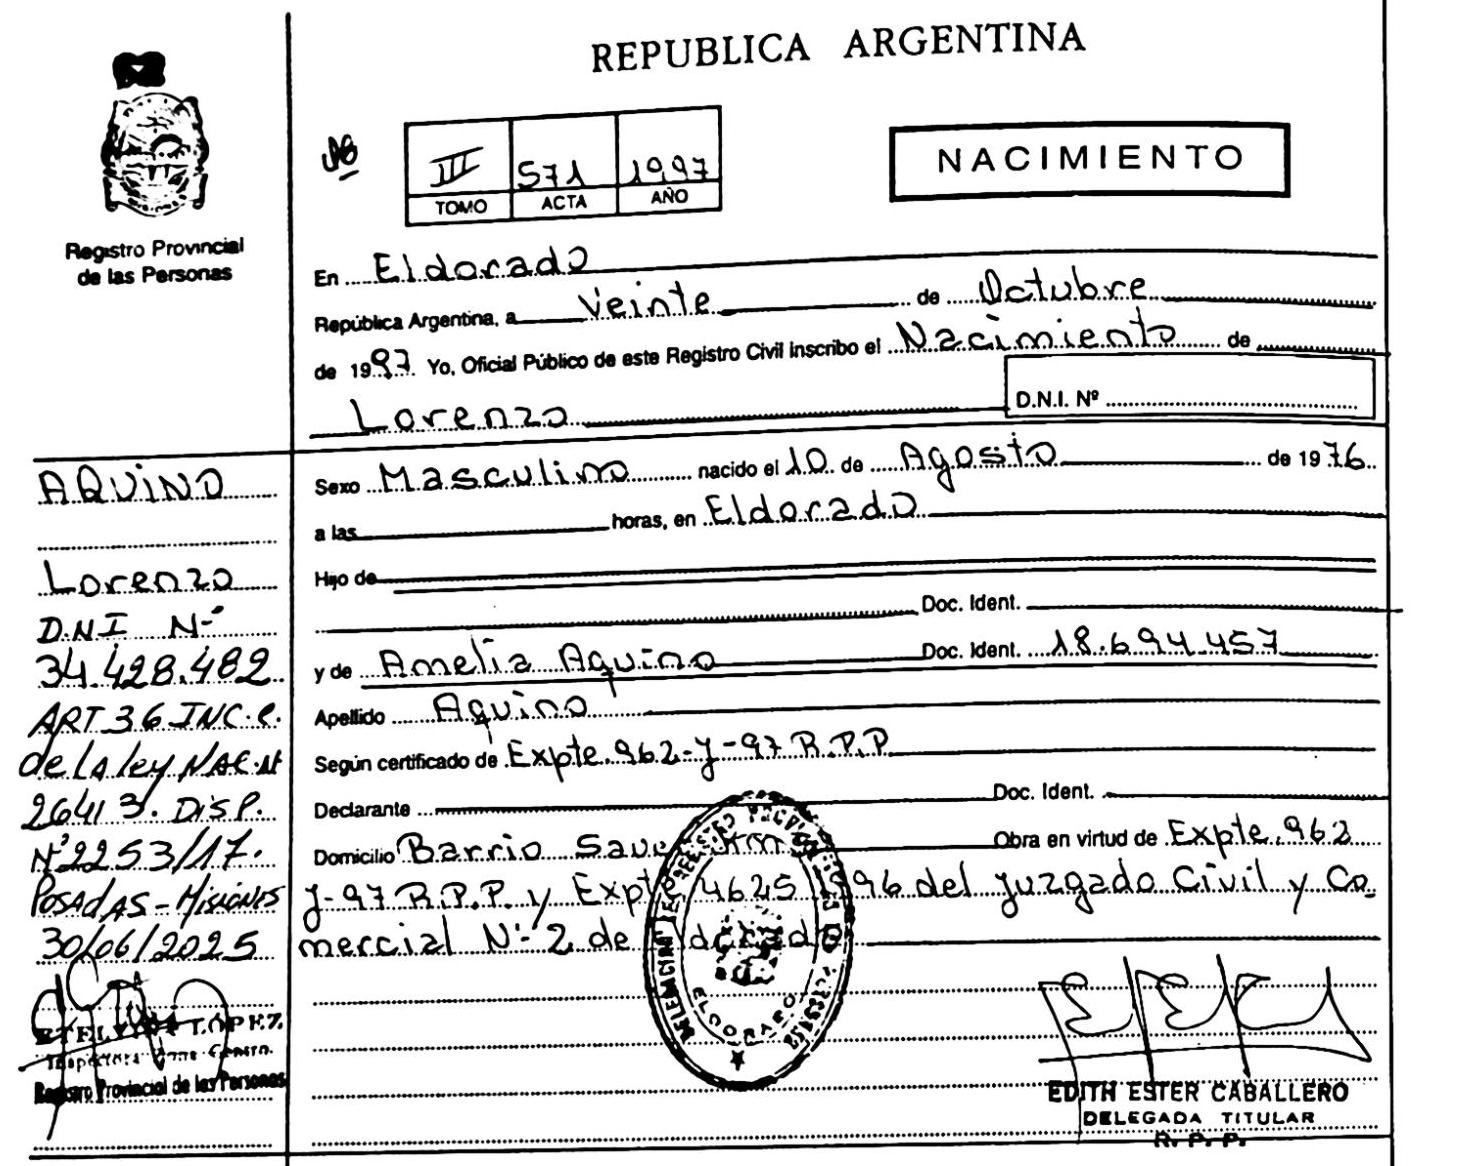 REPUBLICA ARGENTINA
Registro Provincial
de las Personas
III 571 1997
TOMO ACTA AÑO
NACIMIENTO
En Eldorado
República Argentina, a Veinte de Octubre
de 1997. Yo, Oficial Público de este Registro Civil inscribo el Nacimiento de
Lorenzo D.N.I. Nº
Sexo Masculino nacido el 10 de Agosto de 1976
a las horas, en Eldorado
Hijo de
Doc. Ident.
y de Amelia Aquino Doc. Ident. 18.694.457
Apellido Aquino
Según certificado de Expte. 962-J-97 R.P.P
Declarante Doc. Ident.
Domicilio Barrio Obra en virtud de Expte. 962
J-97 R.P.P. y Expte 4625 96 del juzgado Civil y Co.
mercial Nº 2 de Eldorado
AQUINO
Lorenzo
D.N.I Nº
34.428.482
ART 36 INC.c.
de la ley NAC.Nº
26413. DISP.
Nº2253/17.
POSADAS - Misiones
30/06/2025
LOPEZ
Inspectora Zona Centro
Registro Provincial de las Personas
ELDORADO
EDITH ESTER CABALLERO
DELEGADA TITULAR
R. P. P.